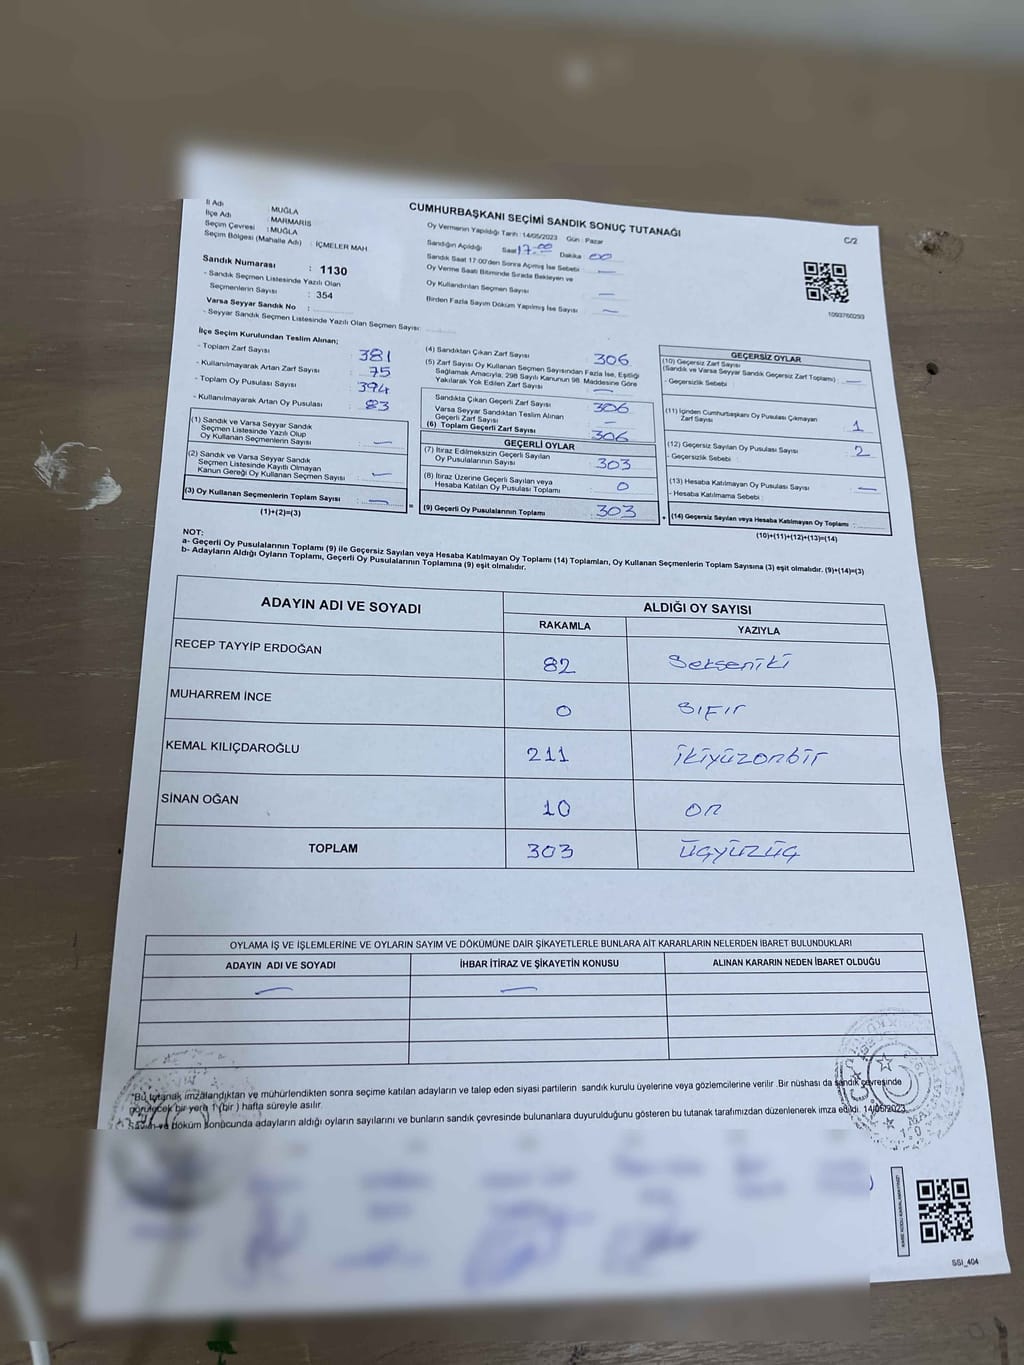 İl Adı : MUĞLA
İlçe Adı : MARMARİS
Seçim Çevresi : MUĞLA
Seçim Bölgesi (Mahalle Adı) : İÇMELER MAH
Sandık Numarası : 1130
- Sandık Seçmen Listesinde Yazılı Olan
Seçmenlerin Sayısı : 354
Varsa Seyyar Sandık No :
- Seyyar Sandık Seçmen Listesinde Yazılı Olan Seçmen Sayısı:
CUMHURBAŞKANI SEÇİMİ SANDIK SONUÇ TUTANAĞI
C/2
Oy Vermenin Yapıldığı Tarih : 14/05/2023 Gün : Pazar
Sandığın Açıldığı Saat 17:00 Dakika 00
Sandık Saat 17:00'den Sonra Açımış İse Sebebi —
Oy Verme Saati Bitiminde Sırada Bekleyen ve
Oy Kullandırılan Seçmen Sayısı —
Birden Fazla Sayım Döküm Yapılmış İse Sayısı —
1093760293
İlçe Seçim Kurulundan Teslim Alınan;
- Toplam Zarf Sayısı : 381
- Kullanılmayarak Artan Zarf Sayısı : 75
- Toplam Oy Pusulası Sayısı : 394
- Kullanılmayarak Artan Oy Pusulası : 83
(1) Sandık ve Varsa Seyyar Sandık
Seçmen Listesinde Yazılı Olup
Oy Kullanan Seçmenlerin Sayısı : —
(2) Sandık ve Varsa Seyyar Sandık
Seçmen Listesinde Kayıtlı Olmayan
Kanun Gereği Oy Kullanan Seçmen Sayısı : —
(3) Oy Kullanan Seçmenlerin Toplam Sayısı : —
(1)+(2)=(3)
(4) Sandıktan Çıkan Zarf Sayısı : 306
(5) Zarf Sayısı Oy Kullanan Seçmen Sayısından Fazla İse, Eşitliği
Sağlamak Amacıyla, 298 Sayılı Kanunun 98. Maddesine Göre
Yakılarak Yok Edilen Zarf Sayısı : —
Sandıkta Çıkan Geçerli Zarf Sayısı : 306
Varsa Seyyar Sandıktan Teslim Alınan
Geçerli Zarf Sayısı : —
(6) Toplam Geçerli Zarf Sayısı : 306
GEÇERLİ OYLAR
(7) İtiraz Edilmeksizin Geçerli Sayılan
Oy Pusulalarının Sayısı : 303
(8) İtiraz Üzerine Geçerli Sayılan veya
Hesaba Katılan Oy Pusulası Toplamı : 0
= (9) Geçerli Oy Pusulalarının Toplamı : 303
GEÇERSİZ OYLAR
(10) Geçersiz Zarf Sayısı
(Sandık ve Varsa Seyyar Sandık Geçersiz Zarf Toplamı) : —
- Geçersizlik Sebebi :
(11) İçinden Cumhurbaşkanı Oy Pusulası Çıkmayan
Zarf Sayısı : 1
(12) Geçersiz Sayılan Oy Pusulası Sayısı : 2
- Geçersizlik Sebebi :
(13) Hesaba Katılmayan Oy Pusulası Sayısı : —
- Hesaba Katılmama Sebebi :
+ (14) Geçersiz Sayılan veya Hesaba Katılmayan Oy Toplamı :
(10)+(11)+(12)+(13)=(14)
NOT:
a- Geçerli Oy Pusulalarının Toplamı (9) ile Geçersiz Sayılan veya Hesaba Katılmayan Oy Toplamı (14) Toplamları, Oy Kullanan Seçmenlerin Toplam Sayısına (3) eşit olmalıdır. (9)+(14)=(3)
b- Adayların Aldığı Oyların Toplamı, Geçerli Oy Pusulalarının Toplamına (9) eşit olmalıdır.
ADAYIN ADI VE SOYADI ALDIĞI OY SAYISI
RAKAMLA YAZIYLA
RECEP TAYYİP ERDOĞAN 82 Sekseniki
MUHARREM İNCE 0 SIFIr
KEMAL KILIÇDAROĞLU 211 ikiyüzonbir
SİNAN OĞAN 10 on
TOPLAM 303 üçyüzüç
OYLAMA İŞ VE İŞLEMLERİNE VE OYLARIN SAYIM VE DÖKÜMÜNE DAİR ŞİKAYETLERLE BUNLARA AİT KARARLARIN NELERDEN İBARET BULUNDUKLARI
ADAYIN ADI VE SOYADI İHBAR İTİRAZ VE ŞİKAYETİN KONUSU ALINAN KARARIN NEDEN İBARET OLDUĞU
— —
"Bu tutanak imzalandıktan ve mühürlendikten sonra seçime katılan adayların ve talep eden siyasi partilerin sandık kurulu üyelerine veya gözlemcilerine verilir .Bir nüshası da sandık çevresinde
görülecek bir yere 1 (bir ) hafta süreyle asılır.
Sayım ve döküm sonucunda adayların aldığı oyların sayılarını ve bunların sandık çevresinde bulunanlara duyurulduğunu gösteren bu tutanak tarafımızdan düzenlenerek imza edildi. 14/05/2023
SSI_404